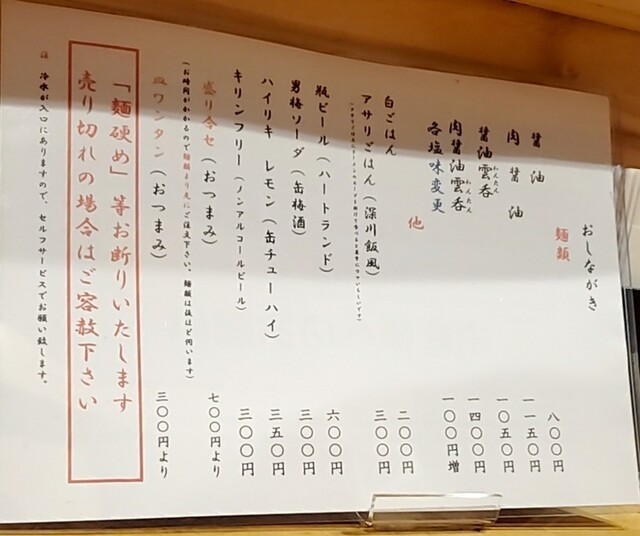 おしながき
麺類
醤油 八〇〇円
肉醤油 一一五〇円
醤油雲呑 一〇五〇円
わんたん
肉醤油雲呑 一四〇〇円
わんたん
各塩味変更 一〇〇円増
他
白ごはん 二〇〇円
アサリごはん(深川飯風) 三〇〇円
瓶ビール(ハートランド) 六〇〇円
男梅ソーダ(缶梅酒) 三〇〇円
ハイリキ レモン(缶チューハイ) 三五〇円
キリンフリー(ノンアルコールビール) 三〇〇円
盛り合せ(おつまみ) 七〇〇円より
(お時間がかかるので麺類より先にご注文下さい。麺類は後ほど伺います)
皿ワンタン(おつまみ) 三〇〇円より
「麺硬め」等お断りいたします
売り切れの場合はご容赦下さい
冷水が入口にありますので、セルフサービスでお願い致します。